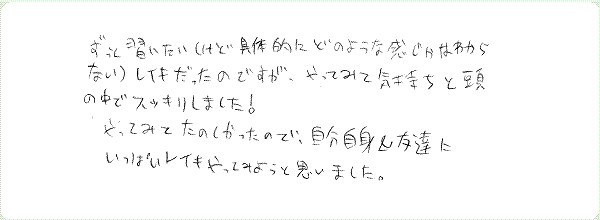 ずっと習いたい(けど具体的にどのような感じかなわから
ない)レイキだったのですが、やってみて気持ちと頭
の中でスッキリしました!
やってみてたのしかったので、自分自身と友達に
いっぱいレイキやってみようと思いました。